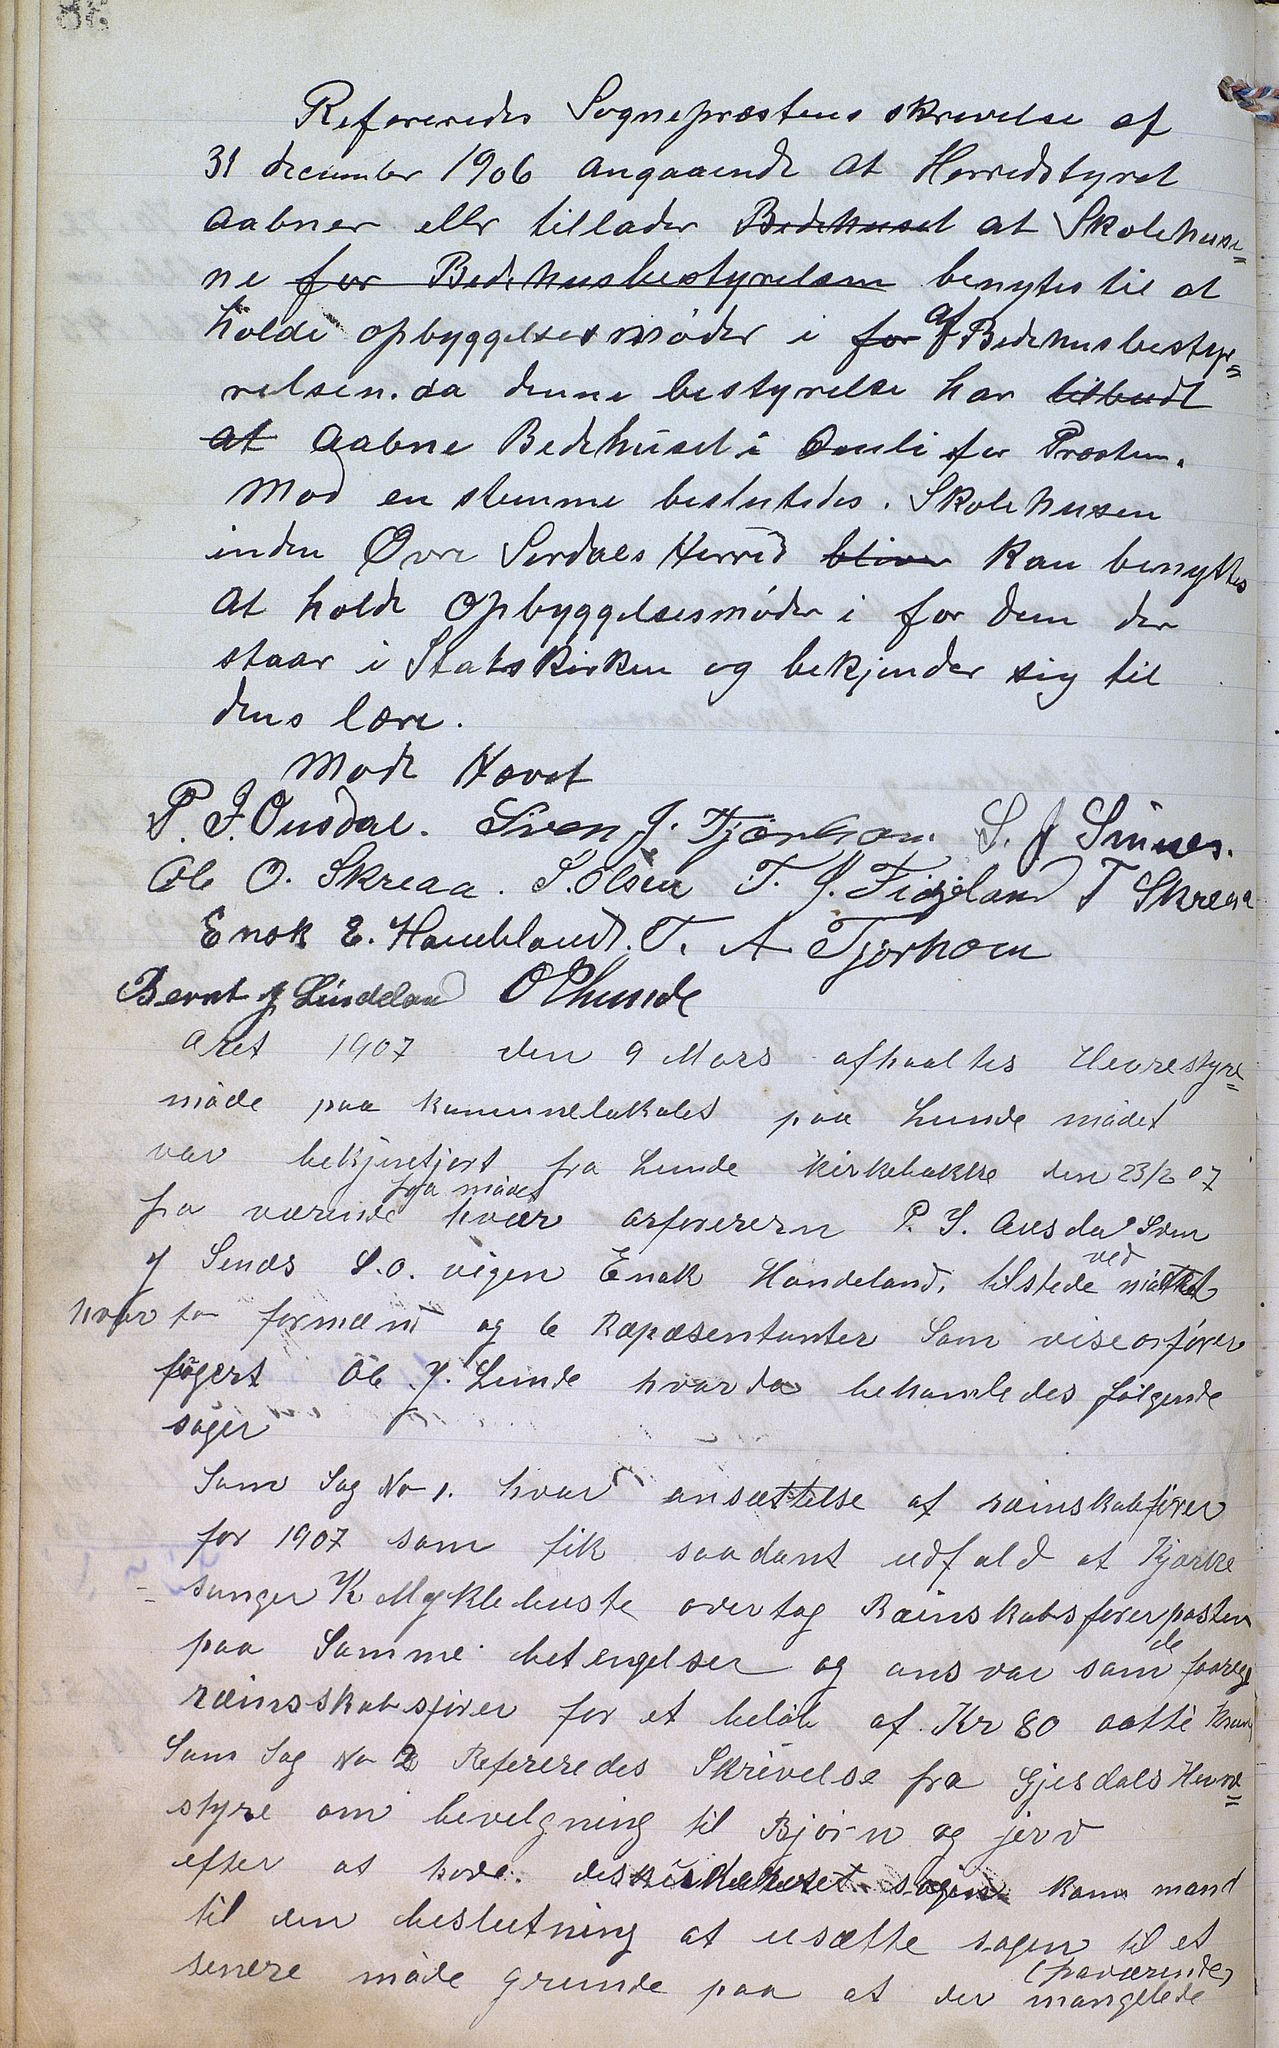 Refereredes Sognepræstens skrivelse af
31 december 1906 angaaende at Herredstyret
aabner eller tillader Bedehuset at Skolehuse=
ne for Bedehusbestyrelsen benytes til at
holde opbyggelsesmøder i for af Bedehusbesty=
relsen. da denne bestyrelse har tilbudt
at aabne Bedehuset i Ousli for Præsten.
Mod en stemme beslutedes. Skolehusen
inden Øvre Serdals Herred bliver kan benyttes
at holde Opbyggelsesmøder i for dem der
staar i Statskirken og bekjender sig til
dens lære.
Møde Hævet
P. J. Ousdal. Sven J. Tjørhom. S. J Sinnes.
Ole O. Skreaa. S. Olsen T. J. Fidjeland T Skreaa
Enok E. Haneland. T. A Tjørhom
Bernt J Lindeland O P Lunde
aret 1907 den 9 Mars afhaaltes Heorestyre=
møde paa kommunelokalet paa Lunde mødet
var bekjnetjort fra Lunde kirkebakke den 23/2 07
fra værende fra mødet hvær orførerern P. J. Ausdal Sven
J Senæs S.O. vigen Enok Handeland. tilstede ved møtet
hvar to formænd og 6 Ræpæsentanter Som viseorfører
fugert Ole J. Lunde hvorda behamledes følgende
sager
Som Sag No 1. hvar ansættelse af ræinskabfører
for 1907 som fik saadant udfald at Kjørke
sanger K Myklebuste overtog Ræinskabsførerposten
paa Samme betengelser og ansvar som de foorige
ræinsskabsfører for et beløb af Kr 80 aatti Kroner
Som Sag No 2 Refereredes Skrivelse fra Gjesdals Herre=
styre om bevelgning til Bjørn og jerv
efter at have. diskuteret sagen kom mand
til den beslutning at usætte sagen til et
senere møde grunde paa at der (fraværende)
mangelede